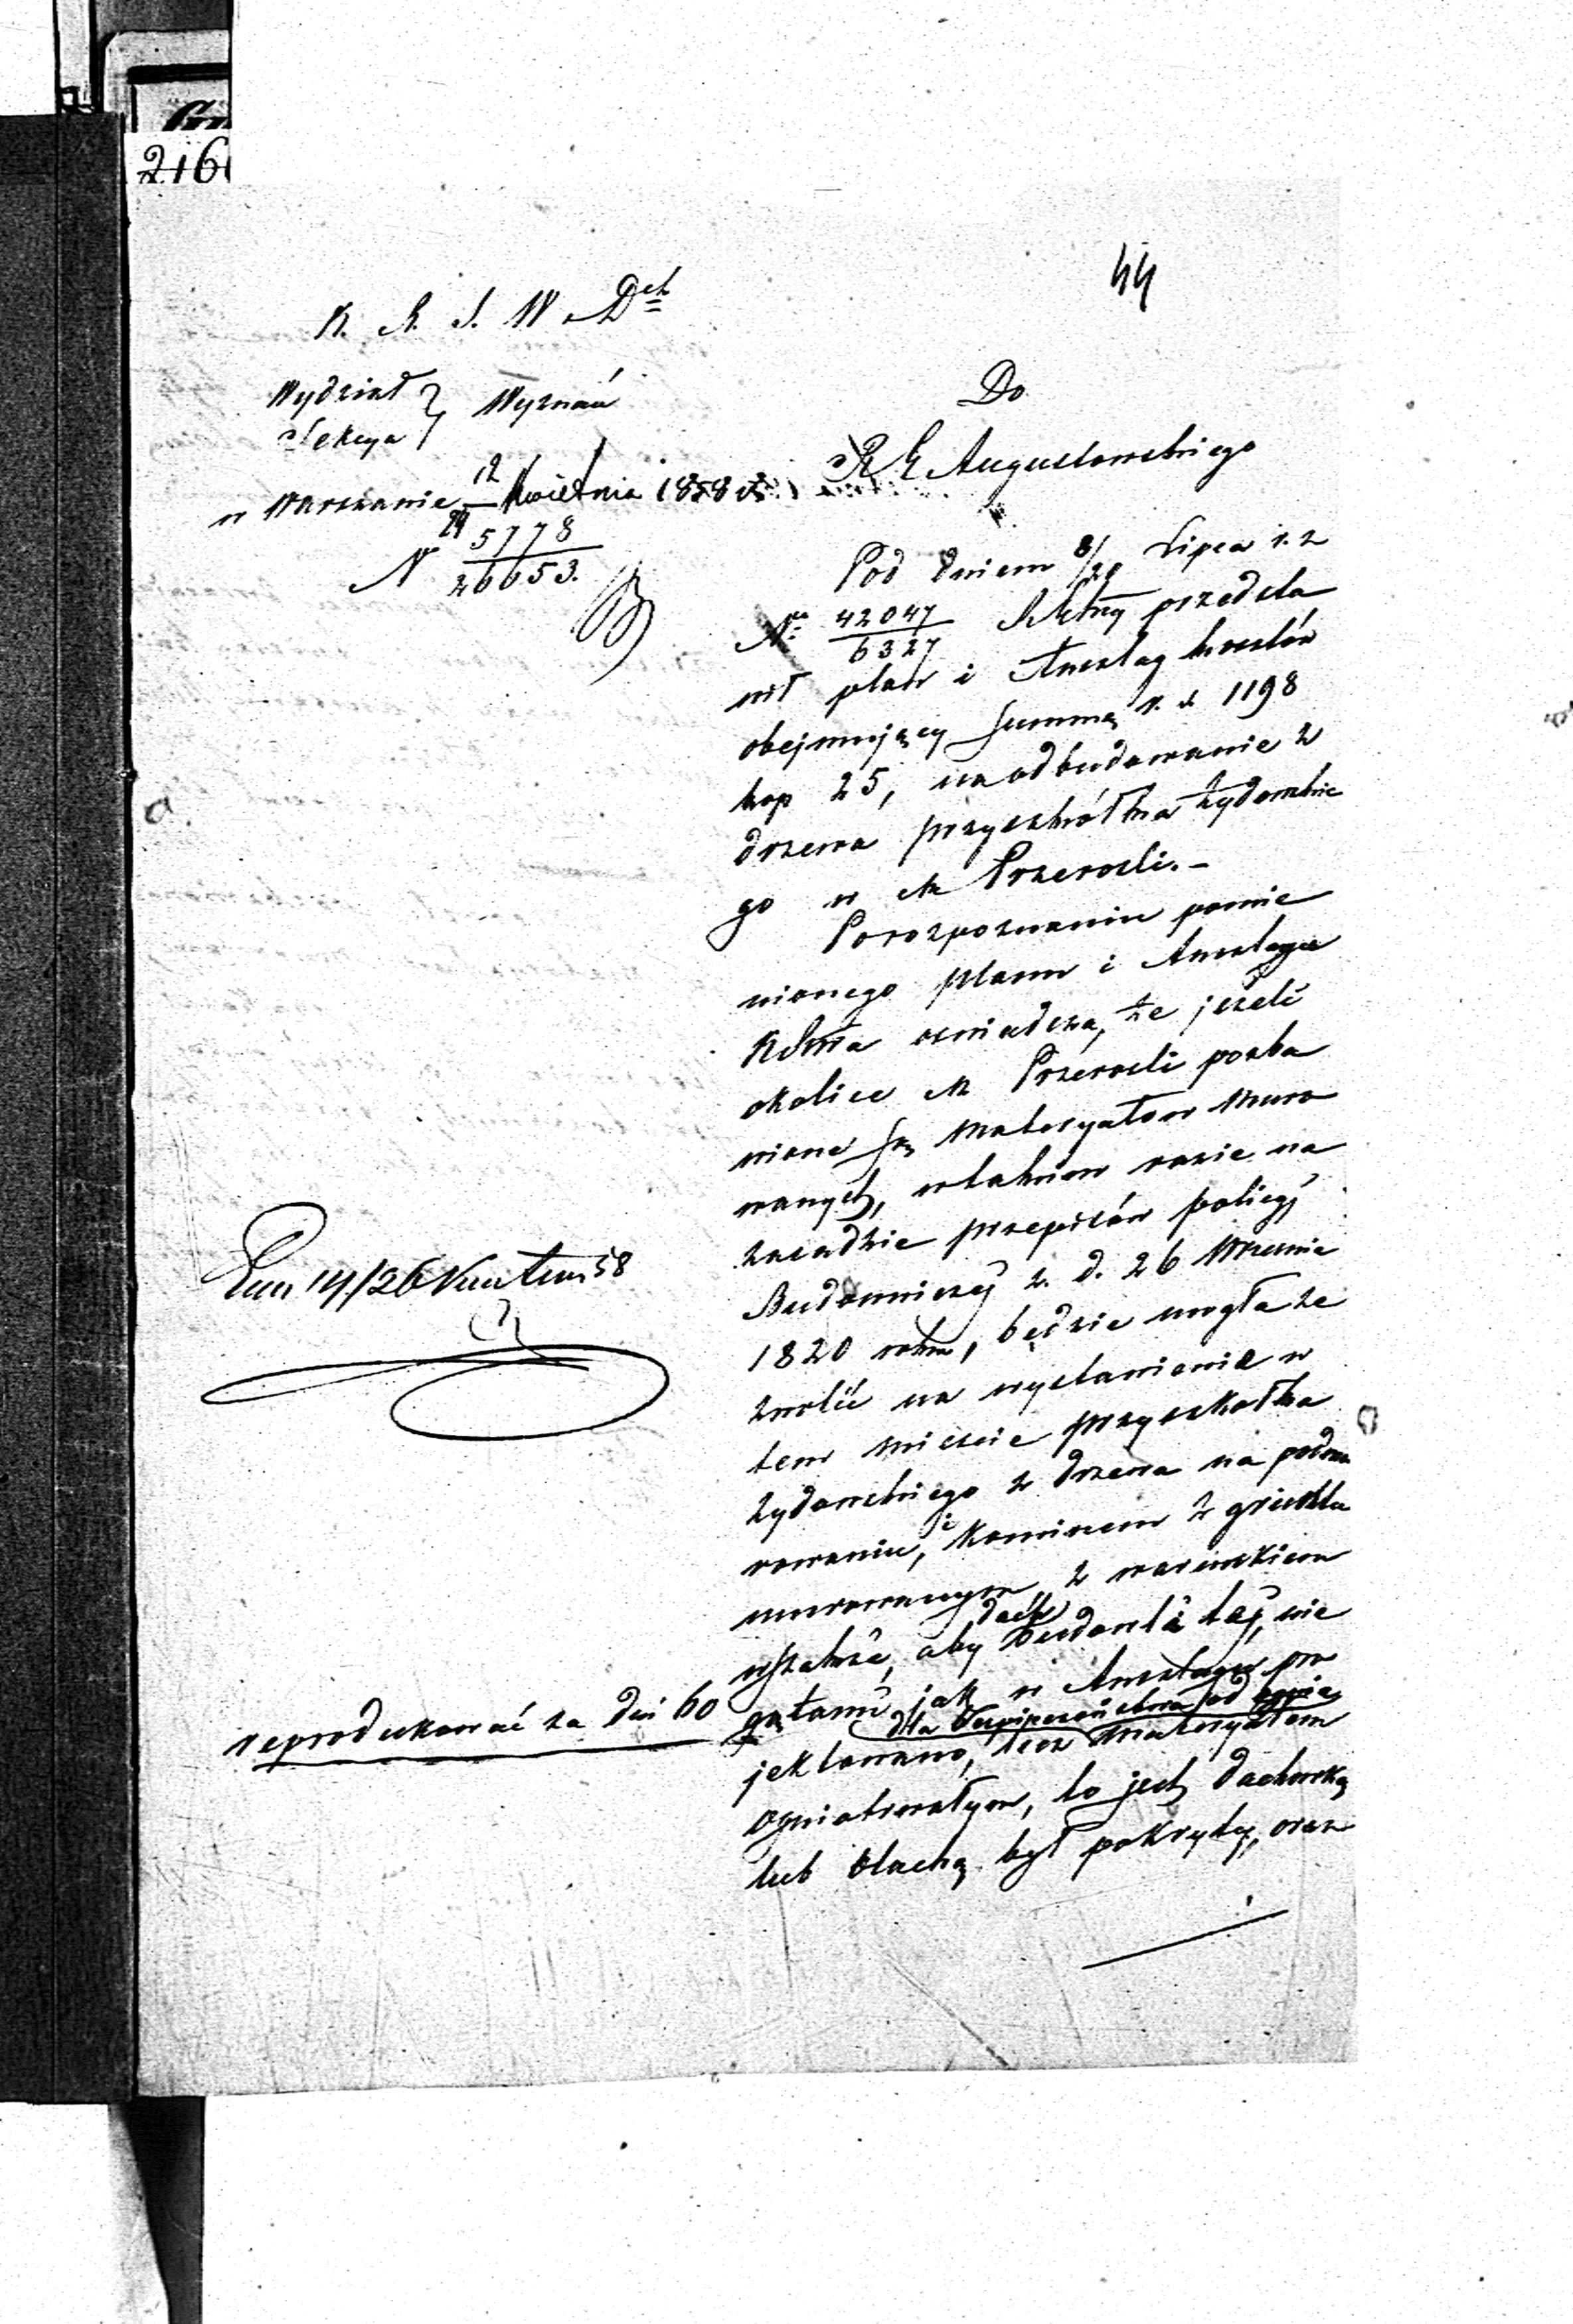 216
44
K. R. S. W. D.ch
Wydział } Wyznań
Sekcya
w Warszawie 12/24 Kwietnia 1858 r.
N 5778/26653.
Do
R G Augustowskiego
Pod dniem 8/20 Lipca r. z
No 42047/6327 przedsta
wił plan i Anszlag kosztów
obejmujący summę r. s. 1198
kop 25, na odbudowanie z
drzewa przyszkółka żydowskie
go w M. Przerośli. –
Po rozpoznaniu pomie
nionego planu i Anszlagu
oświadcza, że jeżeli
okolice M Przerośli pozba
wione są materyałow muro
wanych, w takim razie na
zasadzie przepisów policyj
Budowniczej z. d. 26 Wrzesnia
1820 roku, będzie mogła ze
zwolić na wystawienie w
tem mieście przyszkołka
żydowskiego z drzewa na podmu
rowaniu, i kominem z gruntu
murowanym, z warunkiem
wszakże, aby dach budowli tej, nie
gątami jak w Anszlagu pro
dla bezpieczeństwa od ognia
jektowano, lecz materyałem
ogniotrwałym, to jest dachówką
lub blachą był pokryty, oraz
14/26 58
reprodukować za dni 60